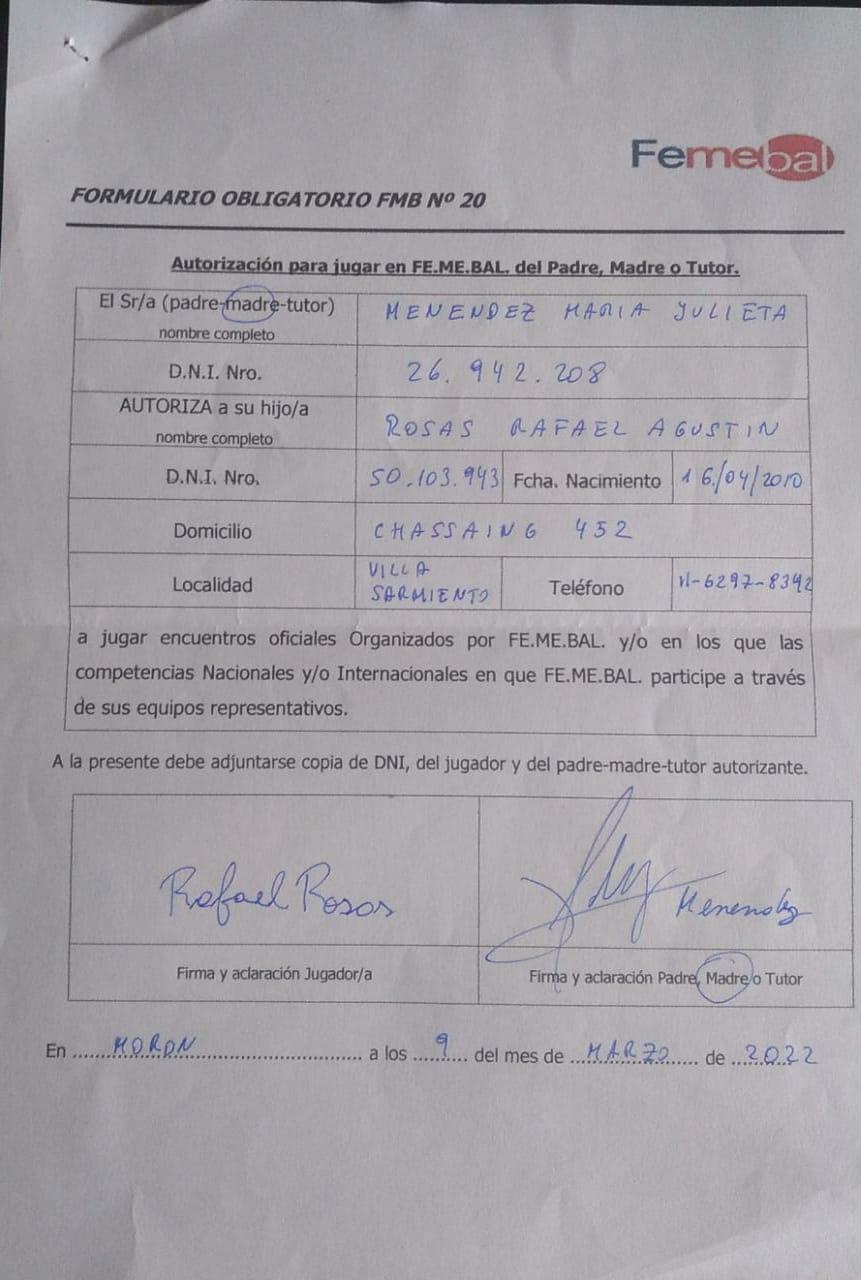 Femebal
FORMULARIO OBLIGATORIO FMB Nº 20
Autorización para jugar en FE.ME.BAL. del Padre, Madre o Tutor.
El Sr/a (padre-madre-tutor) MENENDEZ MARIA JULIETA
nombre completo
D.N.I. Nro. 26.942.208
AUTORIZA a su hijo/a ROSAS RAFAEL AGUSTIN
nombre completo
D.N.I. Nro. 50.103.943 Fcha. Nacimiento 16/04/2010
Domicilio CHASSAING 452
Localidad VILLA SARMIENTO Teléfono 11-6297-8342
a jugar encuentros oficiales Organizados por FE.ME.BAL. y/o en los que las
competencias Nacionales y/o Internacionales en que FE.ME.BAL. participe a través
de sus equipos representativos.
A la presente debe adjuntarse copia de DNI, del jugador y del padre-madre-tutor autorizante.
Rafael Rosas Menendez
Firma y aclaración Jugador/a Firma y aclaración Padre, Madre o Tutor
En ....... MORON ....... a los ... 9 ... del mes de ... MARZO ... de ... 2022